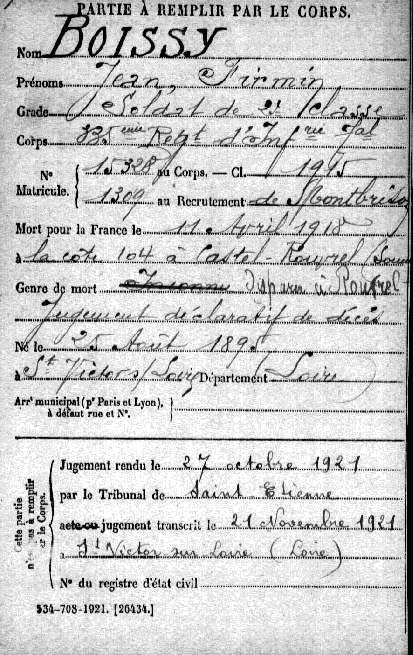 PARTIE À REMPLIR PAR LE CORPS.
Nom BOISSY
Prénoms Jean, Firmin
Grade Soldat de 2e Classe
Corps Regt d'Inf
N° Matricule. 15328 au Corps. — Cl. 1915
1309 au Recrutement de Montbrison
Mort pour la France le 11 Avril 1918
à la cote 104 à Castel-Rouvrel
Genre de mort Inconnu Disparu à Rouvrel
Jugement déclaratif de décès
Né le 25 Août 1895
à St Victor s/Loire Département Loire
Arrt municipal (pr Paris et Lyon),
à défaut rue et N°.
Cette partie n'est pas à remplir par le Corps.
Jugement rendu le 27 octobre 1921
par le Tribunal de Saint Etienne
acte ou jugement transcrit le 21 Novembre 1921
à St Victor sur Loire (Loire)
N° du registre d'état civil
534-708-1921. [26434.]